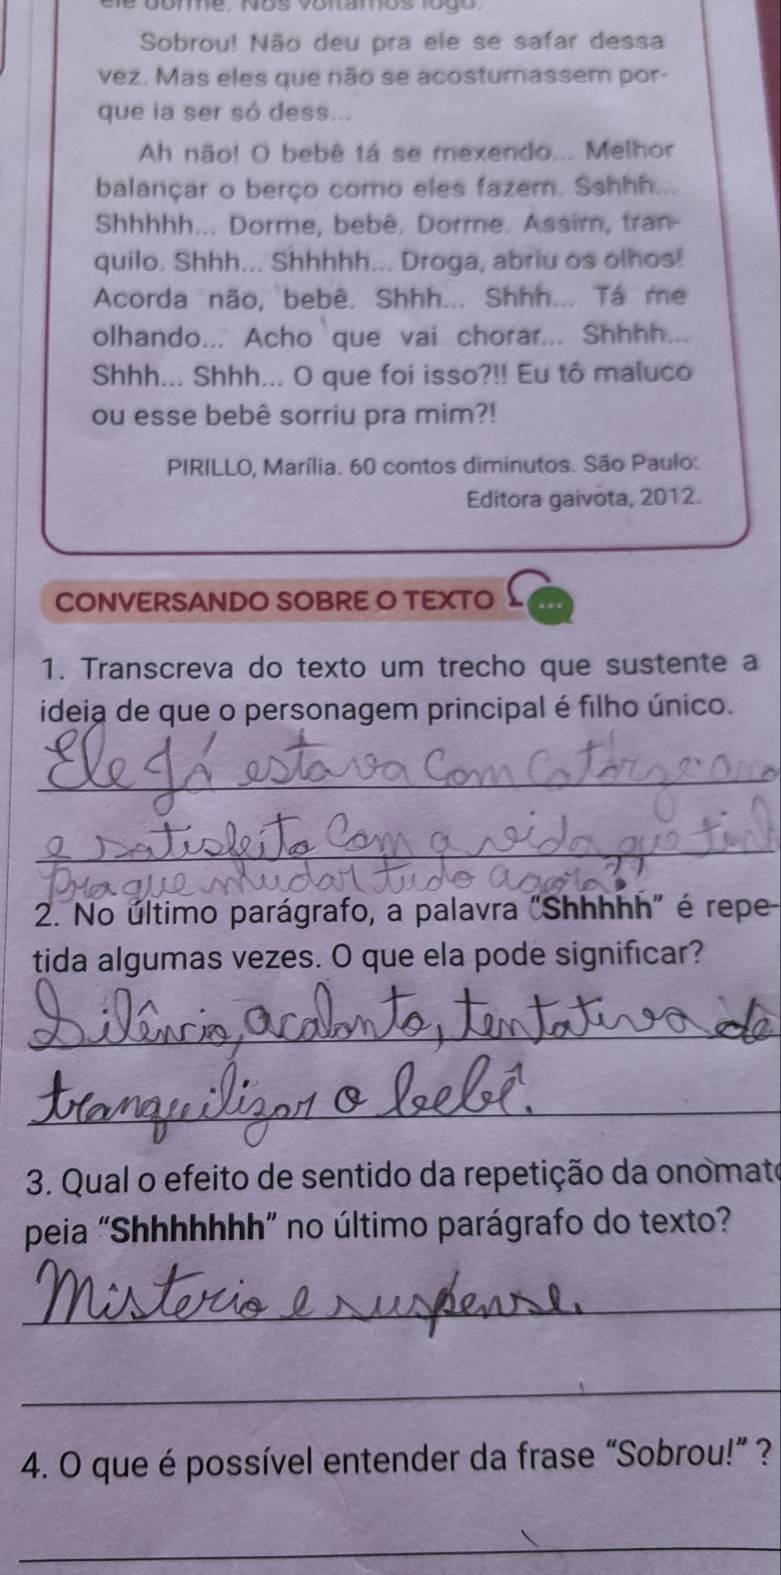 ele dorme. Nós voltamos logo.
Sobrou! Não deu pra ele se safar dessa
vez. Mas eles que não se acostumassem por-
que ia ser só dess...
Ah não! O bebê tá se mexendo... Melhor
balançar o berço como eles fazem. Sshhh...
Shhhhh... Dorme, bebê. Dorme. Assim, tran-
quilo. Shhh... Shhhhh... Droga, abriu os olhos!
Acorda não, bebê. Shhh... Shhh... Tá me
olhando... Acho que vai chorar... Shhhh...
Shhh... Shhh... O que foi isso?!! Eu tô maluco
ou esse bebê sorriu pra mim?!
PIRILLO, Marília. 60 contos diminutos. São Paulo:
Editora gaivota, 2012.
CONVERSANDO SOBRE O TEXTO
1. Transcreva do texto um trecho que sustente a
ideia de que o personagem principal é filho único.
Ele já estava com catorze ano
e satisfeito com a vida que tinh
pra que mudar tudo agora??
2. No último parágrafo, a palavra "Shhhhh" é repe-
tida algumas vezes. O que ela pode significar?
Silêncio, acalanto, tentativa de
tranquilizar o bebê.
3. Qual o efeito de sentido da repetição da onomato
peia "Shhhhhhh" no último parágrafo do texto?
Misterio e suspense.
4. O que é possível entender da frase "Sobrou!" ?